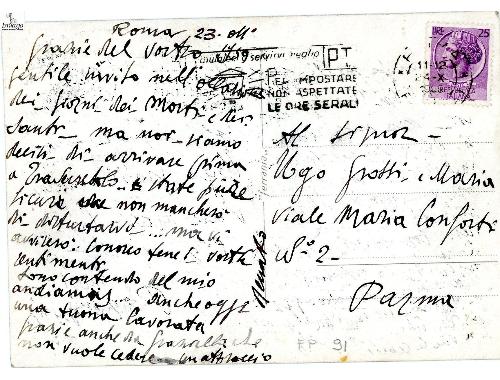 Roma 23. ott.
Grazie del vostro
gentile invito nell'occasione
dei giorni dei Morti e dei
Santi - ma noi siamo
decisi di arrivare prima
a state pure
sicura che non mancherò
di disturbarvi ma vi
avviserò. Conosco bene i vostri
sentimenti
Sono contento del mio
andiamas Anche oggi
una buona lavorata
Grazie anche da che
non vuole cedere
Renato
aiutateci a servirvi meglio
PT
NEL IMPOSTARE
NON ASPETTATE
LE ORE SERALI
LIRE 25
Al Signor -
Ugo Grossi e Maria
Viale Maria Conforti
N° 2 -
Parma
FP 91